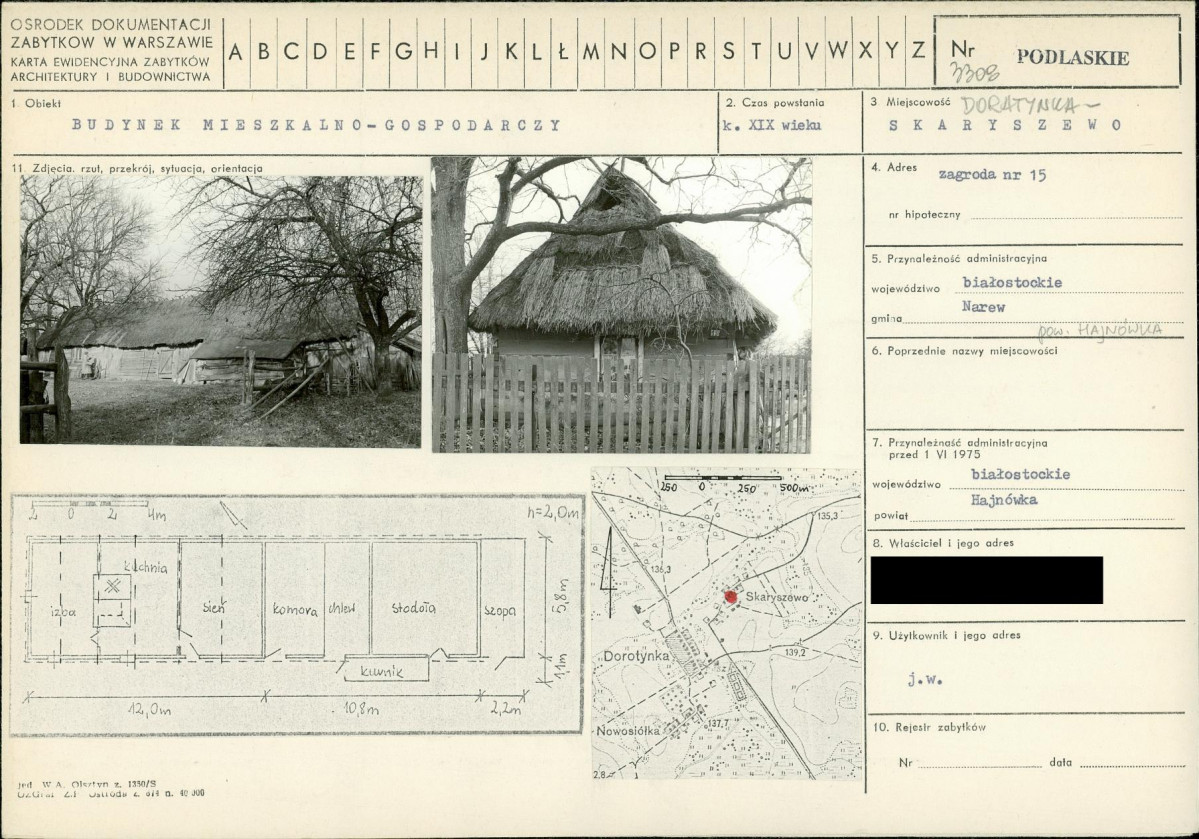 OŚRODEK DOKUMENTACJI
ZABYTKÓW W WARSZAWIE
KARTA EWIDENCYJNA ZABYTKÓW
ARCHITEKTURY I BUDOWNICTWA
A B C D E F G H I J K L Ł M N O P R S T U V W X Y Z
Nr
3308
PODLASKIE
1. Obiekt
BUDYNEK MIESZKALNO-GOSPODARCZY
2. Czas powstania
k. XIX wieku
3. Miejscowość DORATYNKA -
SKARYSZEWO
11. Zdjęcia. rzut, przekrój, sytuacja, orientacja
4. Adres zagroda nr 15
nr hipoteczny
5. Przynależność administracyjna
województwo białostockie
gmina Narew
pow. HAJNÓWKA
6. Poprzednie nazwy miejscowości
7. Przynależność administracyjna
przed 1 VI 1975
województwo białostockie
powiat Hajnówka
8. Właściciel i jego adres
9. Użytkownik i jego adres
j.w.
10. Rejestr zabytków
Nr data
2 0 2 4m
h=2,0m
izba
kuchnia
sień
komora
chlew
stodoła
szopa
kurnik
5,8m
1,1m
12,0m
10,8m
2,2m
250 0 250 500m
135,3
136,3
Skaryszewo
Dorotynka
139,2
Nowosiółka
137,7
2,8
jed. W.A. Olsztyn z. 1330/S